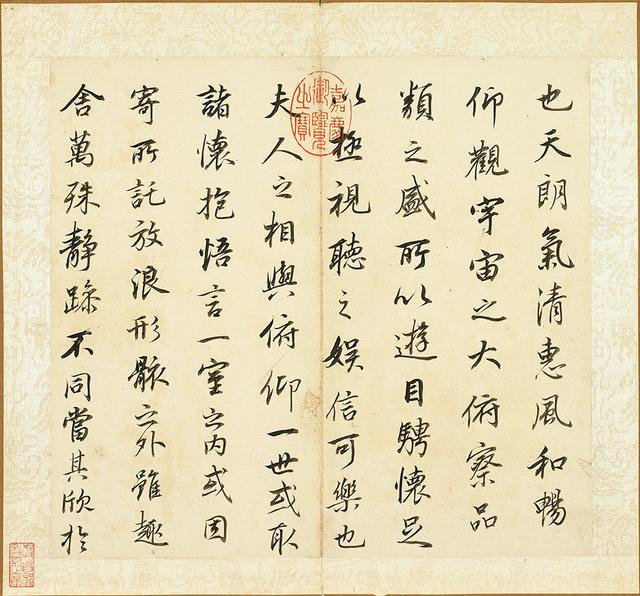 也天朗氣清惠風和暢
仰觀宇宙之大俯察品
類之盛所以遊目騁懷足
以極視聽之娛信可樂也
夫人之相與俯仰一世或取
諸懷抱悟言一室之内或因
寄所託放浪形骸之外雖趣
舍萬殊靜躁不同當其欣於
嘉慶御覽之寶